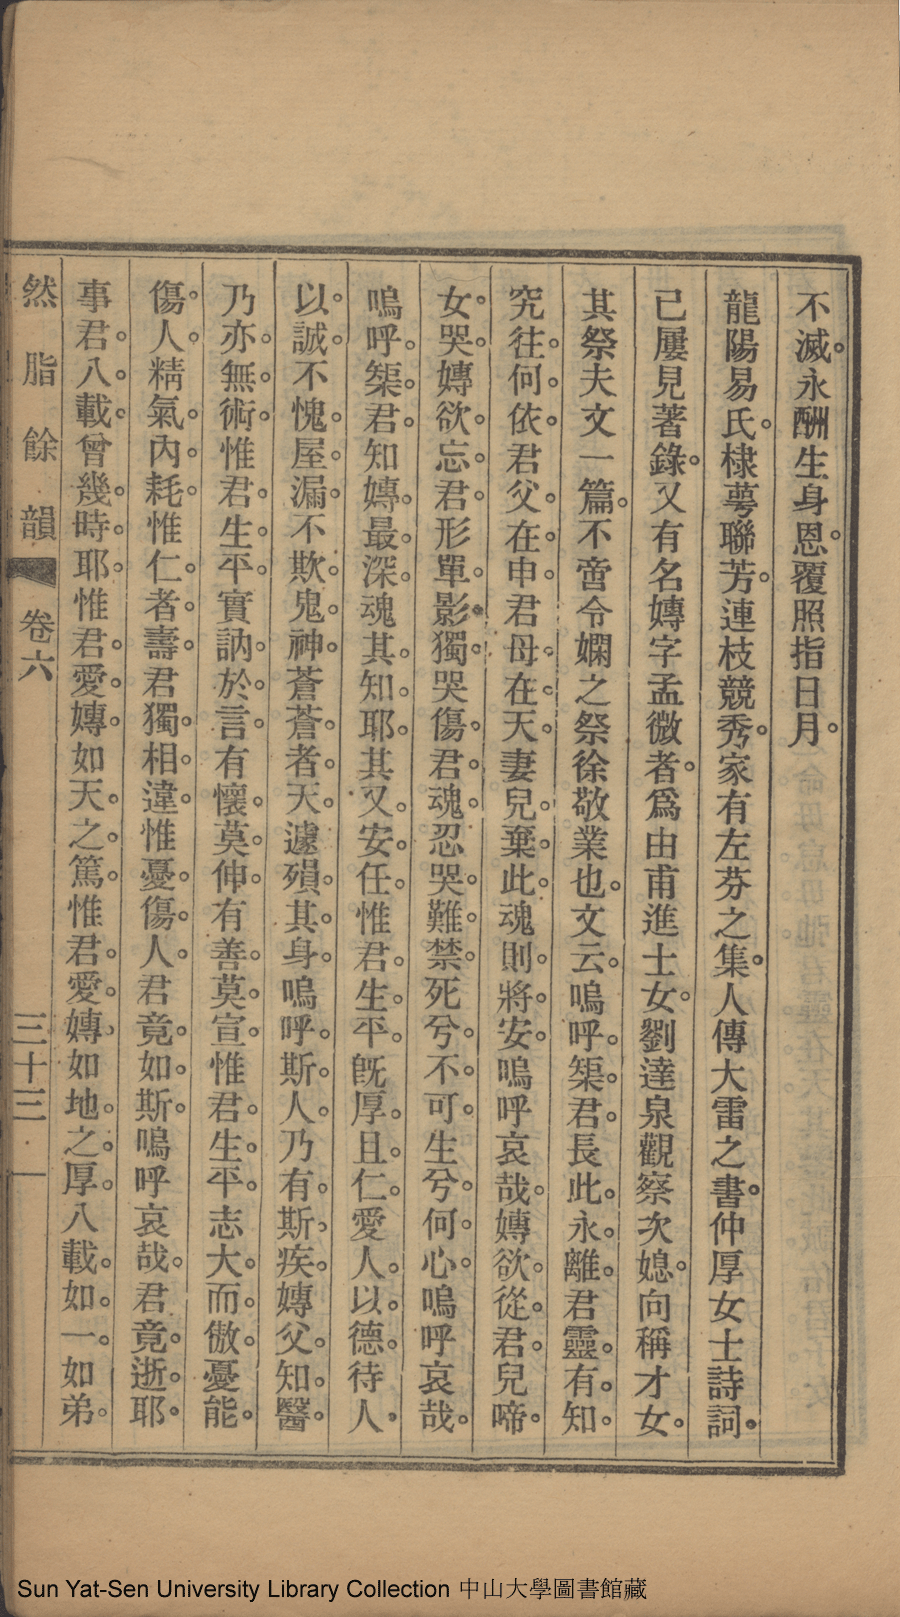 不滅。永酬生身恩。覆照指日月。
龍陽易氏。棣萼聯芳。連枝競秀。家有左芬之集。人傳大雷之書。仲厚女士詩詞。
已屢見著錄。又有名嫥字孟微者。爲由甫進士女。劉達泉觀察次媳。向稱才女。
其祭夫文一篇。不啻令嫻之祭徐敬業也。文云。嗚呼。榘君。長此。永離。君靈。有知。
究往。何依。君父。在申。君母。在天。妻兒。棄此。魂則。將安。嗚呼哀哉。嫥欲。從君。兒啼。
女哭。嫥欲。忘君。形單。影獨。哭傷。君魂。忍哭。難禁。死兮。不可。生兮。何心。嗚呼哀哉。
嗚呼。榘君。知嫥。最深。魂其。知耶。其又。安任。惟君。生平。旣厚。且仁。愛人。以德。待人。
以。誠。不愧。屋。漏。不欺。鬼。神。蒼蒼。者。天。遽殞。其。身。嗚呼。斯。人。乃有。斯。疾。嫥父。知。醫。
乃亦。無。術。惟君。生。平。實訥。於。言。有懷。莫。伸。有善。莫。宣。惟君。生。平。志大。而。傲。憂能。
傷。人。精氣。內。耗。惟仁。者。壽。君獨。相。違。惟憂。傷。人。君竟。如。斯。嗚呼哀哉。君竟。逝。耶。
事君。八。載。曾幾。時。耶。惟君。愛。嫥。如天。之。篤。惟君。愛。嫥。如地。之。厚。八載。如。一。如弟。
然脂餘韻 卷六 三十三
Sun Yat-Sen University Library Collection 中山大學圖書館藏